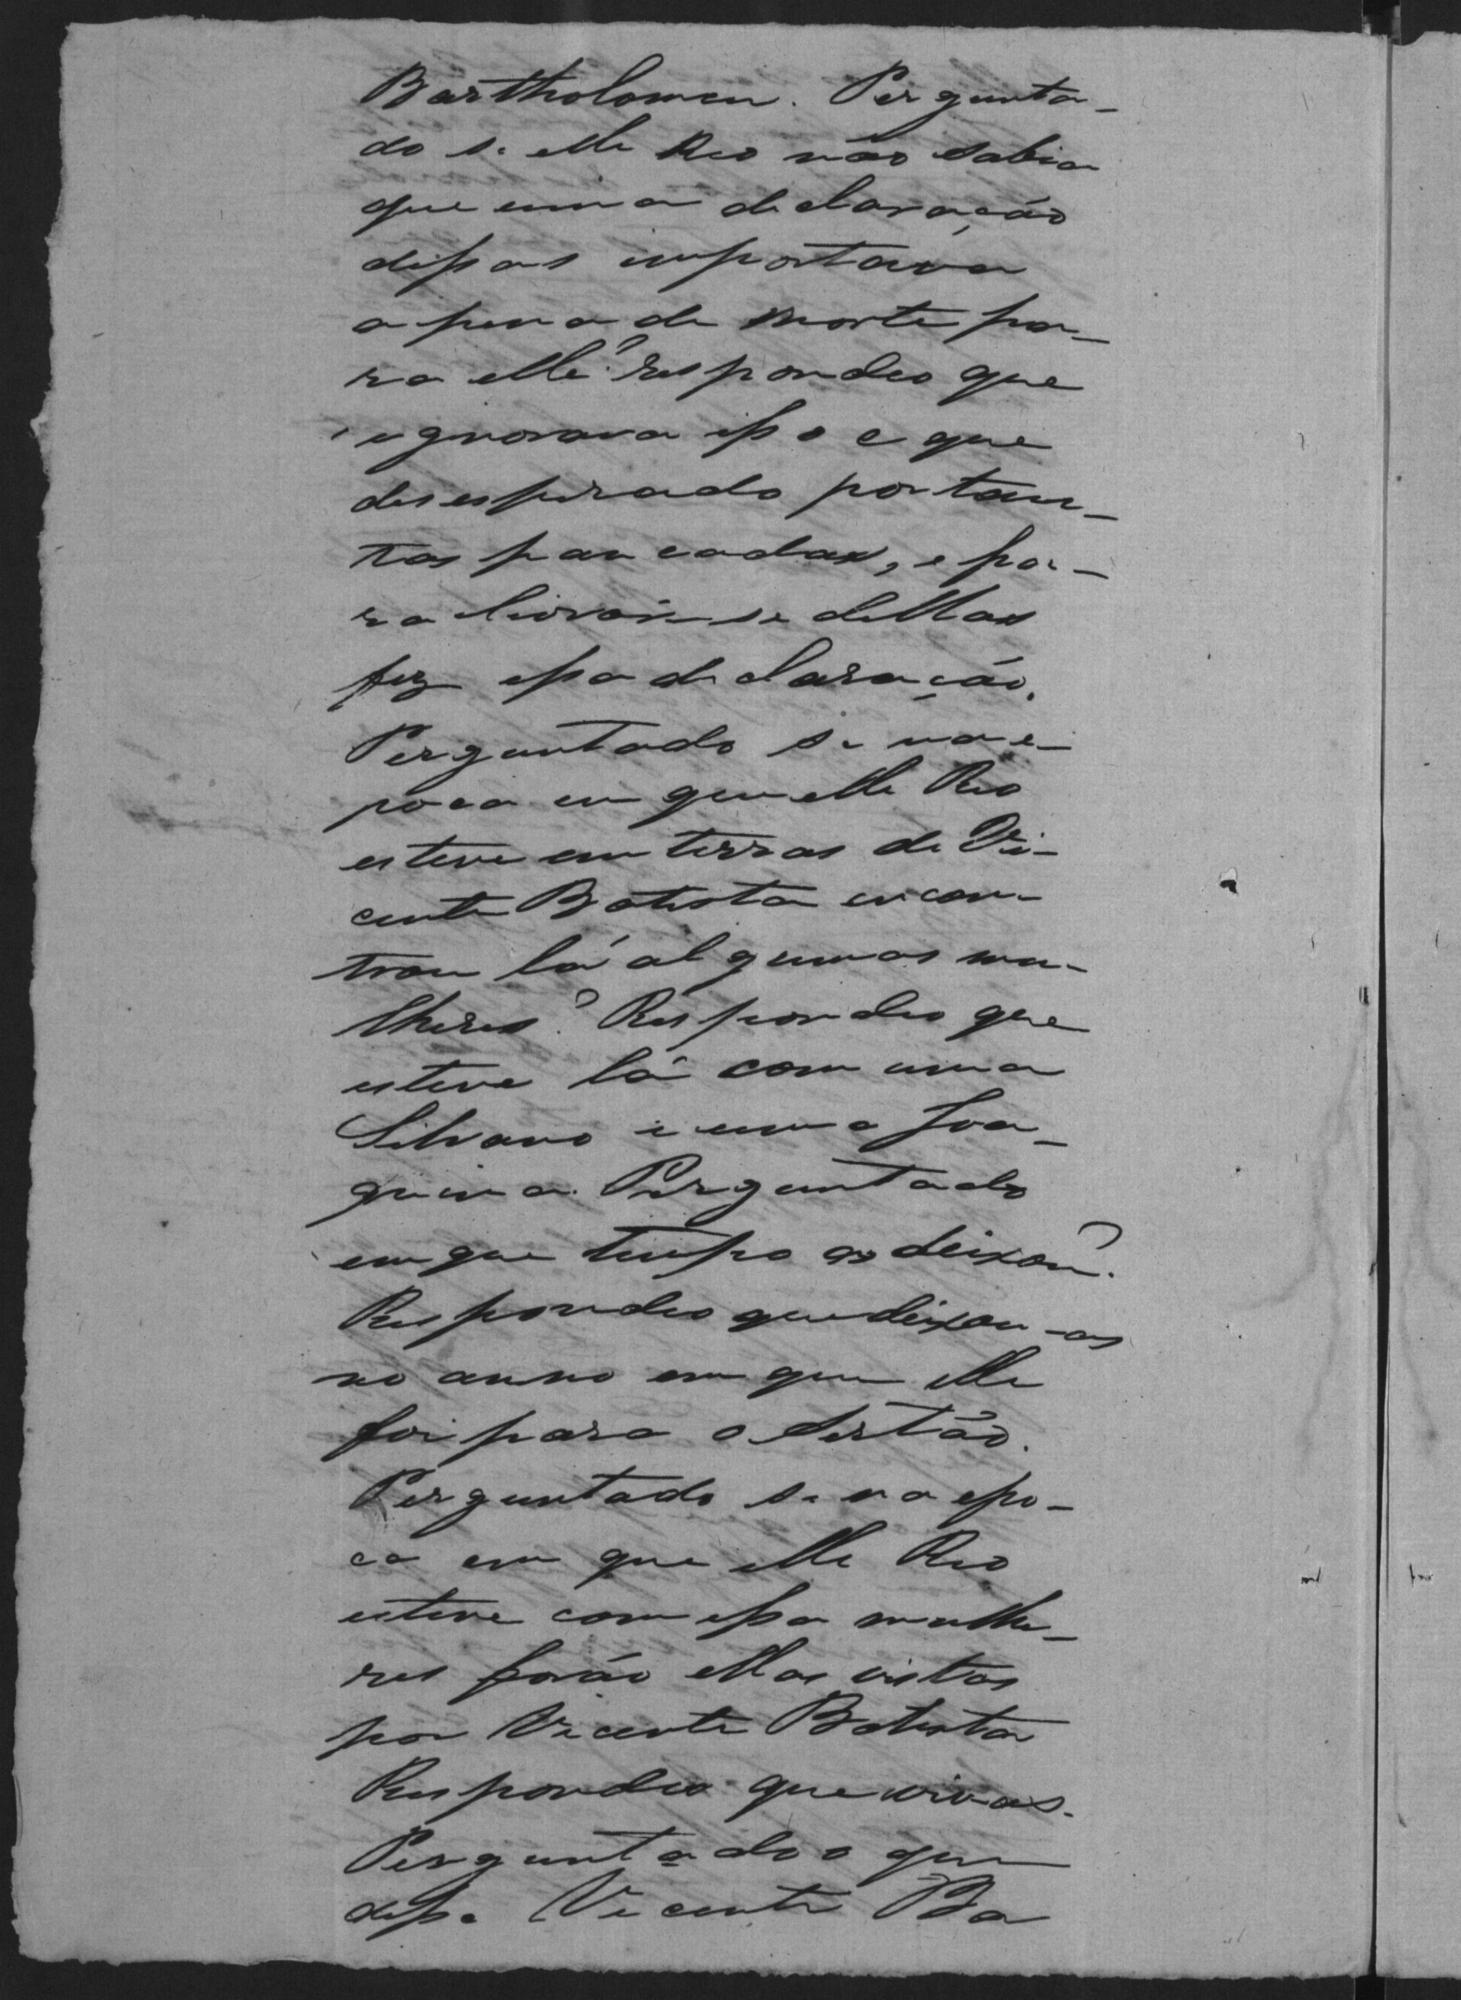 Bartholomeu. Pergunta-
do se elle Reo não sabia
que uma declaração
dessas importava
a pena de morte pa-
ra elle? respondeo que
ignorava isso e que
desesperado por tan-
tas pancadas, e pa-
ra livrar-se dellas
fez essa declaração.
Perguntado se na e-
poca em que elle Reo
esteve em terras de Vi-
cente Batista encon-
trou lá algumas mu-
lheres? Respondeo que
esteve lá com uma
Silvana e uma Joa-
quina. Perguntado
em que tempo as deixou?
Respondeo que deixou-as
no anno em que elle
foi para o Sertão.
Perguntado se na epo-
ca em que elle Reo
esteve com essa mulhe-
res forão ellas vistas
por Vicente Batista
Respondeo que
Perguntado o que
disse Vicente Ba